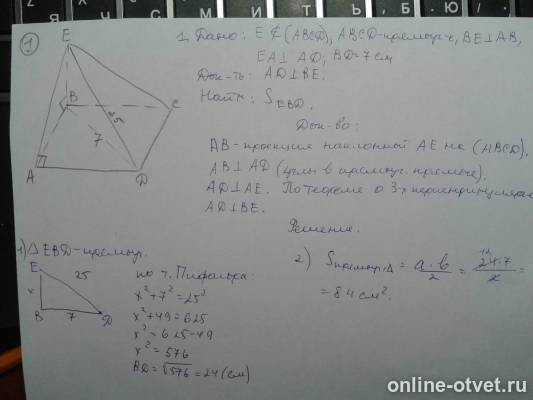 1
1. Дано: E ∉ (ABCD), ABCD – прямоуг-к, BE⊥AB,
EA⊥AD, BD=7см
Док-ть: AD⊥BE.
Найти: S EBD.
Док-во:
AB – проекция наклонной AE на (ABCD).
AB⊥AD (углы в прямоуг.
AD⊥AE. По теореме о 3х перпендикулярах
AD⊥BE.
Решение.
E
B
C
25
7
A
D
1) △EBD – прямоуг.
E
25
x
B
7
D
по т. Пифагора:
x²+7²=25²
x²+49=625
x²=625-49
x²=576
BD=√576=24(см)
2) Sпрямоуг.△ = a·b/2 = 24·7/2 =
12
= 84 см².
online-otvet.ru